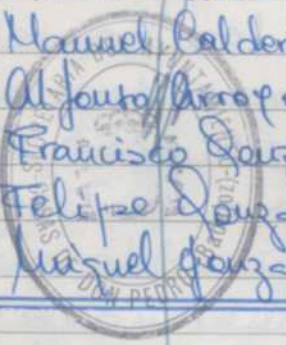 Manuel Calder
Alfonso Arroyo
Francisco Gonz
Felipe Gonza
Miguel Gonza
DON PEDRO (Badajoz)